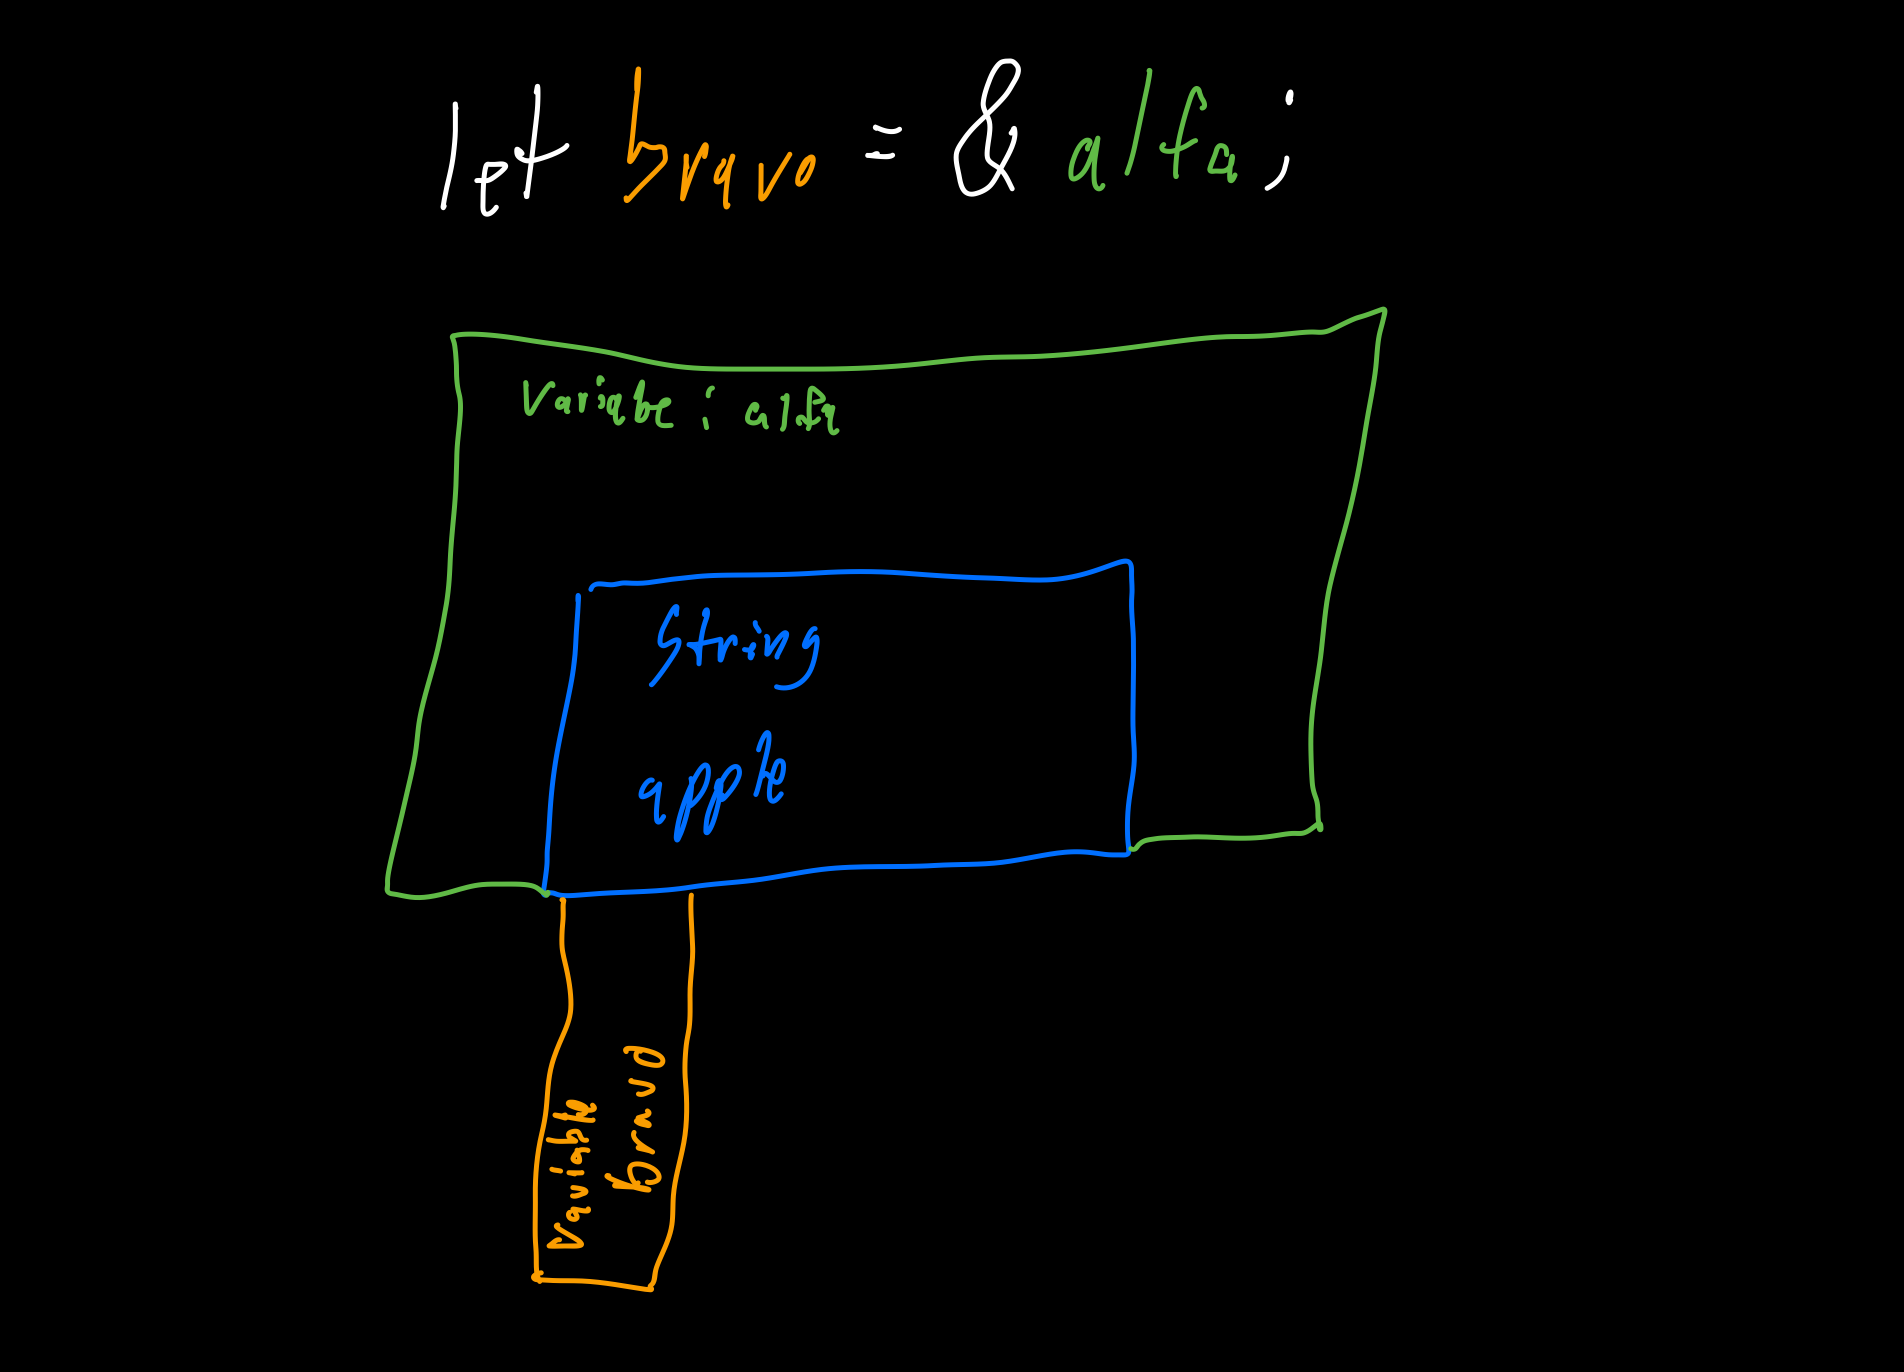 let bravo = & alfa;
Variable : alfa
String
apple
Variable
bravo